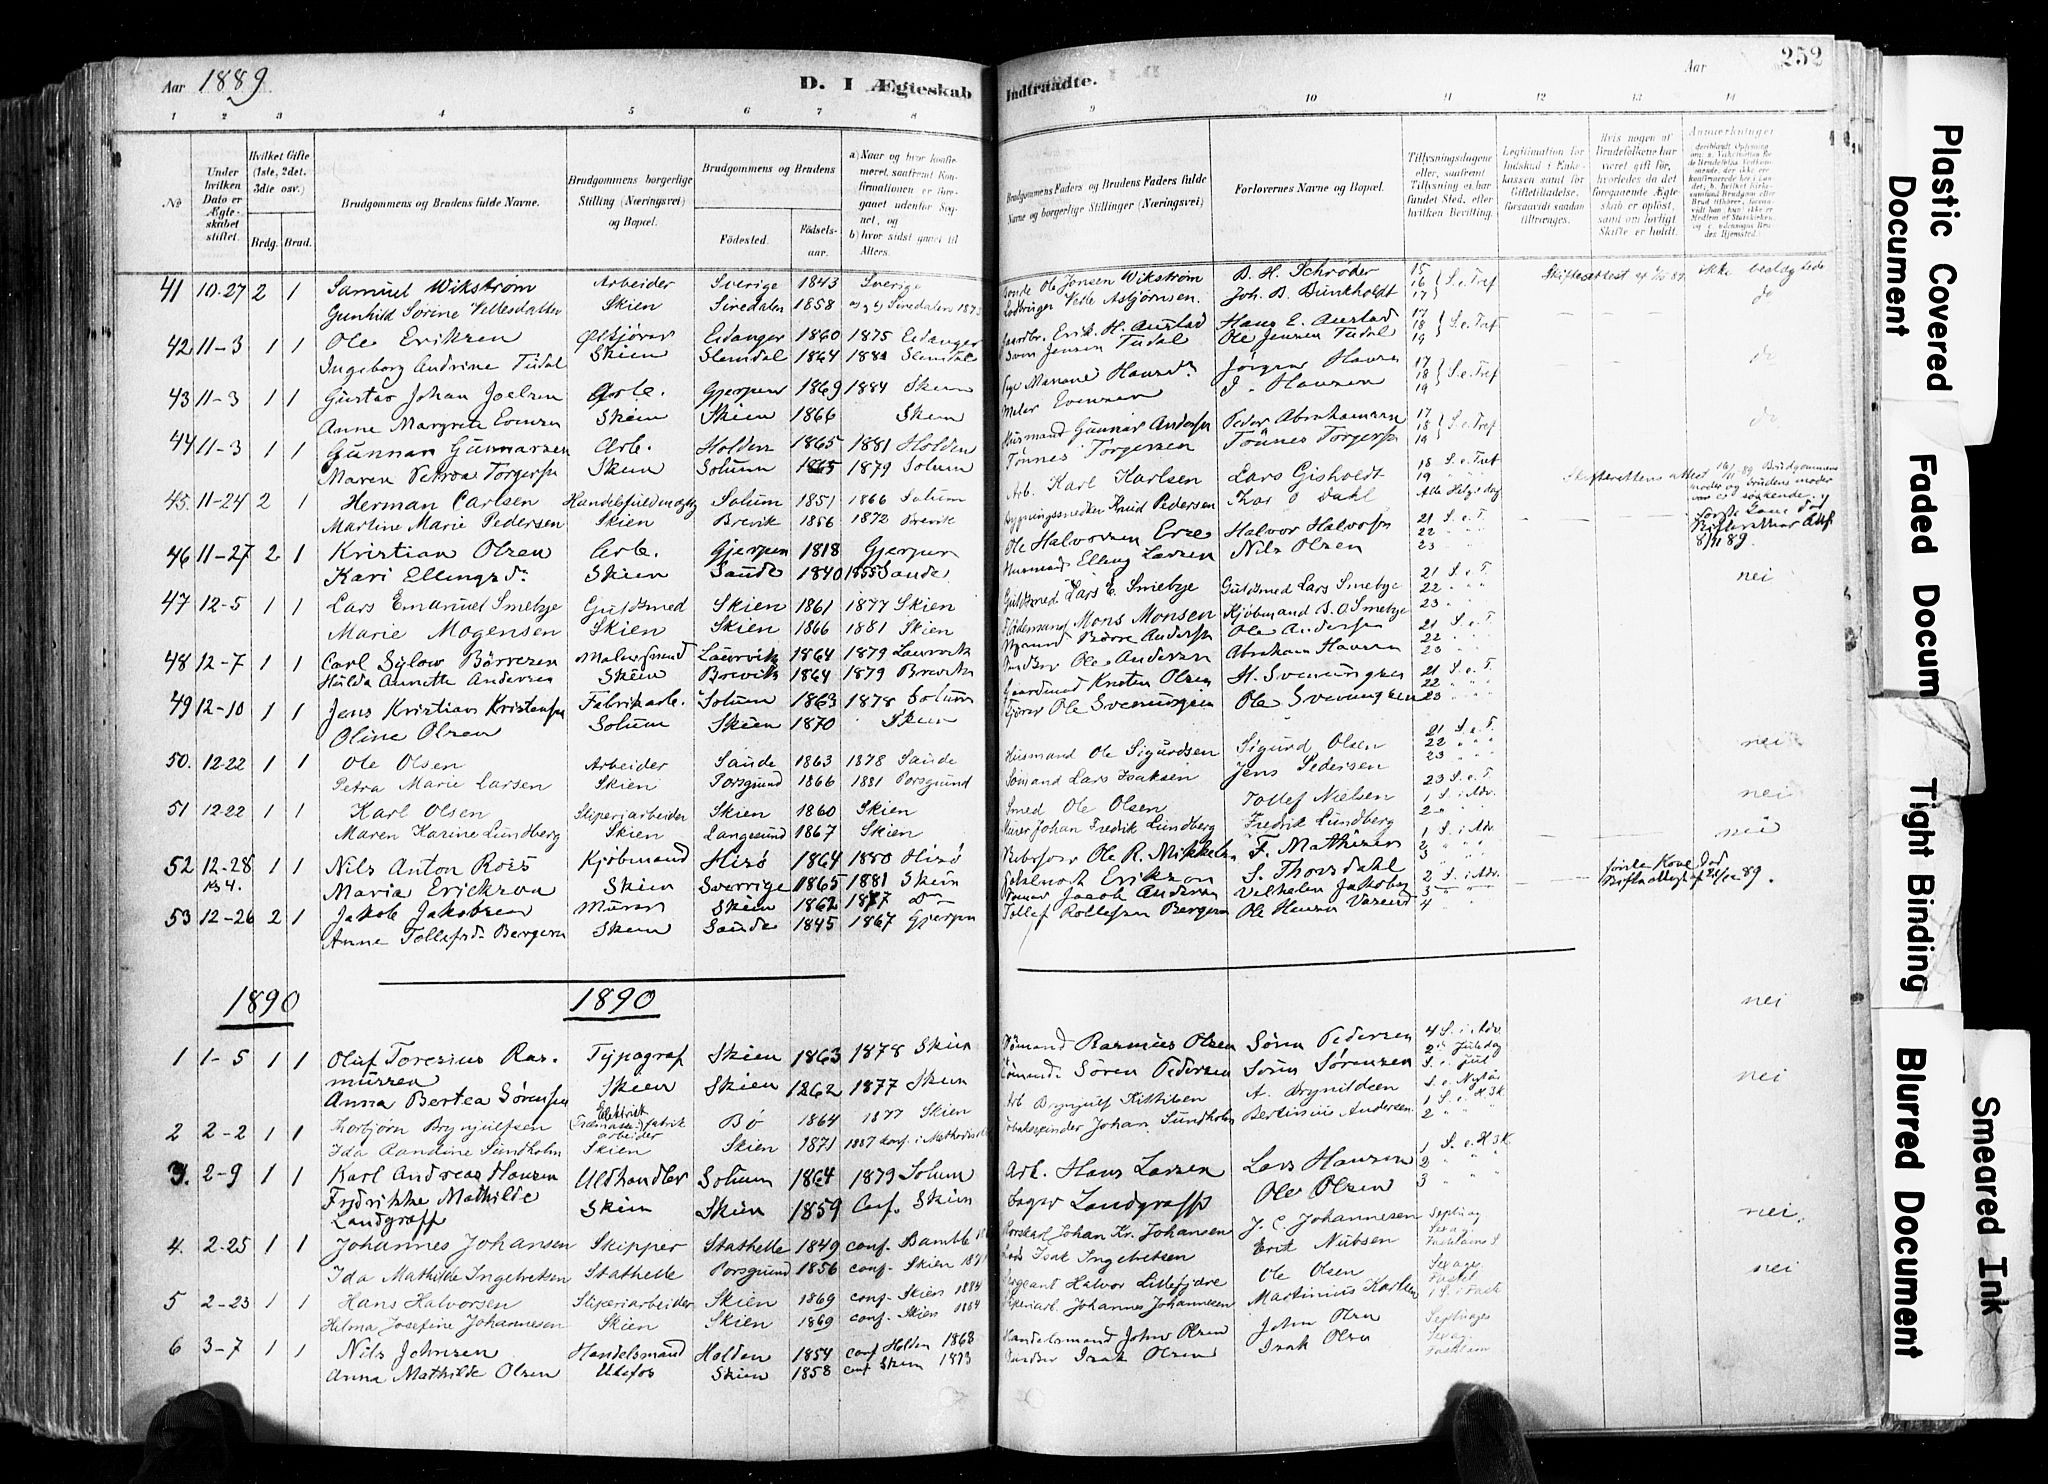 Aar 1889
D. I Ægteskab
1 2 3 4 5 6 7 8
No
Under hvilken Dato er Ægteskabet stiftet.
Hvilket Gifte (1ste, 2det, 3die osv.)
Brdg. Brud.
Brudgommens og Brudens fulde Navne.
Brudgommens borgerlige Stilling (Næringsvei) og Bopæl.
Brudgommens og Brudens
Fødested. Fødselsaar.
a) Naar og hvor konfirmeret, saafremt Konfirmationen er foregaaet udenfor Sognet, og b) hvor sidst gaaet til Alters.
41 10-27 2 1 Samuel Wikstrøm Arbeider Sverige 1843 Sverige
Gunhild Sorine Vetlesdatter Skien Siredalen 1858
42 11-3 1 1 Ole Eriksen Eidanger 1860 1875 Eidanger
Ingeborg Andrine Tudal Skien Slemdal 1864 1881 Slemdal
43 11-3 1 1 Gustav Johan Joelsen Arb. Gjerpen 1869 1884 Skien
Anne Margrete Evensen Skien Skien 1866 Skien
44 11-3 1 1 Gunnar Gunnarsen Arb. Holden 1865 1881 Holden
Maren Torgersen Skien Solum 1865 1879 Solum
45. 11-24 2 1 Herman Carlsen Handelsfuldmægtig Solum 1851 1866 Solum
Martine Marie Pedersen Skien Brevik 1856 1872 Brevik
46 11-27 2 1 Kristian Olsen Arb. Gjerpen 1818 Gjerpen
Kari Ellingsd. Skien Saude 1840 1855 Saude
47 12-5 1 1 Lars Emanuel Smebye Guldsmed Skien 1861 1877 Skien
Marie Mogensen Skien Skien 1866 1881 Skien
48 12-7 1 1 Carl Sylow Børresen Malersvend Laurvik 1864 1879 Laurvik
Hulda Annette Andersen Skien Brevik 1864 1879 Brevik
49 12-10 1 1 Jens Kristian Kristensen Fabrikarb. Solum 1863 1878 Solum
Oline Olsen Solum Skien 1870 Skien
50. 12-22 1 1 Ole Olsen Arbeider Saude 1863 1878 Saude
Petra Marie Larsen Skien Porsgrund 1866 1881 Porsgrund
51 12-22 1 1 Karl Olsen Sliperiarbeider Skien 1860 Skien
Maren Karine Lundberg Skien Langesund 1867 Skien
52 12-28 1 1 Nils Anton Roes Kjøbmand Hisø 1864 1880 Hisø
Kl 4. Maria Erickson Skien Sverrige 1865 1881 Skien
53 12-26 2 1 Jakob Jakobsen Murer Skien 1862 1877 Do
Anne Tollefsd. Bergern Skien Saude 1845 1867 Gjerpen
1890 1890
1 1-5 1 1 Oluf Toresius Ras- Typograf Skien 1863 1878 Skien
mussen
Anna Bertea Sørensen Skien Skien 1862 1877 Skien
2 2-2 1 1 Torbjørn Brynjulfsen Elektrisk Træmasse fabrik arbeider Bø 1864 1877 Skien
Ida Randine Sundholm Skien Skien 1871 1887 Conf. i
3. 2-9 1 1 Karl Andreas Hansen Uldhandler Solum 1864 1879 Solum
Fredrikke Mathilde Landgraff Skien Skien 1859 Conf. Skien
4. 2-25 1 1 Johannes Johansen Skipper Stathelle 1849 conf. Bamble
Ida Mathilde Ingebretsen Stathelle Porsgrund 1856 conf. Skien
5 2-23 1 1 Hans Halvorsen Sliperiarbeider Skien 1869 conf. Skien 1884
Helma Josefine Johannesen Skien Skien 1869 conf. Skien 1884
6 3-7 1 1 Nils Johnsen Handelsmand Holden 1854 conf Holden 1868
Anna Mathilde Olsen Ulefos Skien 1858 conf Skien 1873
Indtraadte.
Aar 252
9 10 11 12 13 14
Brudgommens Faders og Brudens Faders fulde Navne og borgerlige Stillinger (Næringsvei)
Forlovernes Navne og Bopæl.
Tillysningsdagene eller, saafremt Tillysning ei har fundet Sted, efter hvilken Bevilling.
Legitimation for Indskud i Enkekassen samt for Giftetilladelse, forsaavidt saadan tiltrænges.
Hvis nogen af Brudefolkene har været gift før, hvorledes da det foregaaende Ægteskab er opløst, samt om lovligt Skifte er holdt.
Anmerkninger
Ole Jonsen Wikstrøm B. H. Schrøder 15 16 17 S. e. Tref
Vetle Asbjørnsen Joh. B. Bunkholdt
ikke beslægtede
Gaardbr. Erik H. Aurstad Hans E. Aurstad 17 18 19 S. e. Tref do
Sven Jensen Tudal Ole Jensen Tudal
Pige Mariane Hansd. Jørgen Hansen 17 18 19 S. e. Tref do
Maler Evensen J. Hansen
Husmand Gunnar Andersen Peder Abrahamsen 17 18 19 S. e. Tref do
Tønnes Torgersen Tønnes Torgersen
Arb. Karl Karlsen Lars Gisholdt 18 19 S. e. Tref
Bygningssnedker Knud Pedersen Ivar O Dahl Alle Helgesdag
Ole Halvorsen Halvor Halvorsen 21 22 23 S. e. T.
Husmand Elling Larsen Nils Olsen
Guldsmed Lars E. Smebye Guldsmed Lars Smebye 21 22 23 S. e. T. nei
Mons Monsen Kjøbmand S. O. Smebye
Børre Andersen Ole Andersen 21 22 23 S. e. T.
Ole Andersen Abraham Hansen
Gaardmand Kristen Olsen H. Sveinungsen 21 22 23 S. e. T.
Ole Sveinungsen Ole Sveinungsen
Husmand Ole Sigurdsen Sigurd Olsen 21 22 23 S. e. T. nei
Sømand Lars Isaksen Jens Pedersen
Smed Ole Olsen Tollef Nielsen 23 S. e. T. 1 S. i Adv. 2 nei
Murer Johan Fredrik Lundberg Fredrik Lundberg
Ole R. Mikkelsen F. Mathisen 1 2 3 S. i Adv. nei
Erikson S. Thorsdahl
Jacob Andersen Vilhelm Jakobsen 2 3 4 S. i Adv.
Tollef Rollefsen Bergern Ole Hansen
Første Kone Død
Skifteattest af 89.
nei
Sømand Rasmus Olsen Søren Pedersen 4 S. i Adv. 2 Juledag S. e. Jul
Sømand Søren Pedersen Søren Sørensen
nei
Arb Brynjulf Kittilsen A. Brynildsen S. e. Nytår 1 S. e. H3K 2
Tobaksspinder Johan Sundholm Bertinius Andersen
Arb. Hans Larsen Lars Hansen 1 2 3 S. e. H3K
Bager Landgraff Ole Olsen
nei.
Johan Kr. Johansen J. C. Johannesen
Lods Isak Ingebretsen Erik Nubsen
nei
Sergeant Halvor Lillefjære Ole Olsen
Sliperiarb. Johannes Johannesen Martinius Karlsen
Handelsmand John Olsen John Olsen
Isak Olsen Isak Olsen
Plastic Covered Document
Faded Docum
Tight Binding
Blurred Document
Smeared Ink